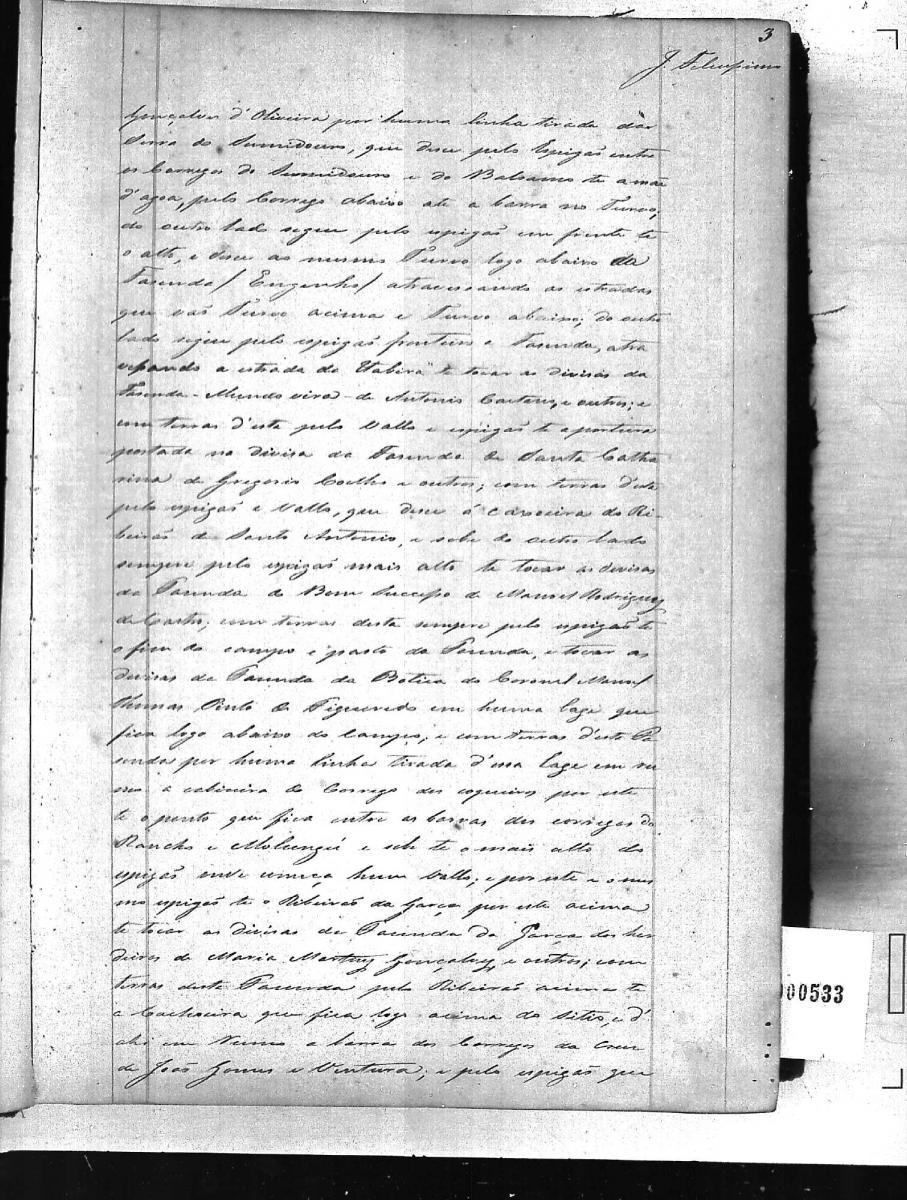 3
J.
Gonçalves d'Oliveira por huma linha tirada da
Serra do Sumidouro, que desce pelo Espigaõ entre
os Corregos do Sumidouro e do Balsamo te a mãe
d'agoa, pelo Corrego abaixo até a barra no Turvo,
do outro lado segue pelo espigaõ em frente te
o alto, e desce ao mesmo Turvo logo abaixo da
Fasenda / Engenho / atravessando as estradas
que vaõ Turvo acima e Turvo abaixo; do outro
lado segue pelo espigaõ fronteiro a Fasenda, atra
vessando a estrada da Itabira te tocar as divisas da
Fasenda - Mundo vira - de Antonio Caetano, e outros; e
com terras d'esta pelo Vallo e espigaõ te a porteira
postada na divisa da Fasenda de Santa Catha
rina de Gregorio Coelho e outros; com terras d'esta
pelo espigaõ e Vallo, que desce á caxoeira do Ri-
beiraõ de Santo Antonio, e sobe do outro lado
sempre pelo espigaõ mais alto te tocar as divisas
da Fasenda do Bom Successo de Manoel Rodrigues
de Castro; com terras desta sempre pelo espigaõ te
o fim do campo e pasto da Fasenda, e tocar as
divisas da Fasenda da Botica do Coronel Manoel
Thomas Pinto de Figueredo em huma lage que
fica logo abaixo do Campo; e com terras d'esta Fa
senda por huma linha tirada d'essa Lage em ru
mo a cabiceira do Corrego dos coqueiros por este
te o ponto que fica entre as barras dos corregos do
Rancho e Molungú e sobe te o mais alto do
espigaõ onde começa hum Vallo; e por este e o mes
mo espigaõ te o Ribeiraõ da Garça por este acima
te tocar as divisas da Fasenda da Garça dos her
deiros de Maria Gonçalves, e outros; com
terras desta Fasenda pelo Ribeiraõ acima te
a Cachoeira que fica logo acima do Sitio, e d'
ahi em Rumo a barra dos Corregos da Cruz
de Joaõ Gomes e Ventura; e pelo espigaõ que
000533